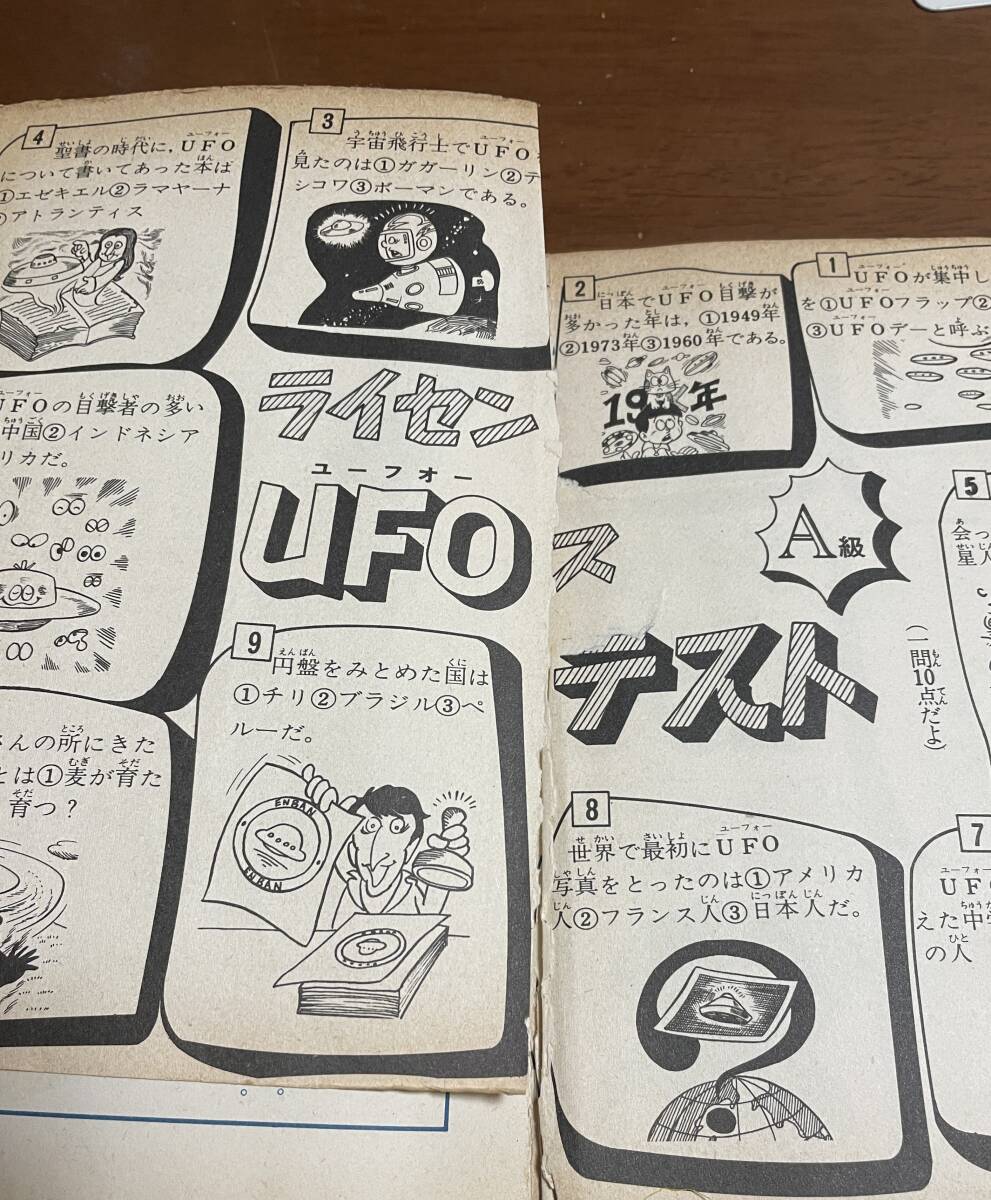 4
聖書の時代に，UFO
について書いてあった本は
①エゼキエル②ラマヤーナ
アトランティス
3
宇宙飛行士でUFO
見たのは①ガガーリン②テ
シコワ③ボーマンである。
2
日本でUFO目撃が
多かった年は，①1949年
②1973年③1960年である。
19 年
1
UFOが集中し
を①UFOフラップ②
③UFOデーと呼ぶ
UFOの目撃者の多い
中国②インドネシア
リカだ。
ライセン
ス
ユーフォー
UFO
テスト
A級
(一問10点だよ)
5
会っ
星人
9
円盤をみとめた国は
①チリ②ブラジル③ペ
ルーだ。
ENBAN
ENBAN
さんの所にきた
とは①麦が育た
育つ？
8
世界で最初にUFO
写真をとったのは①アメリカ
人②フランス人③日本人だ。
7
UF
えた中
の人